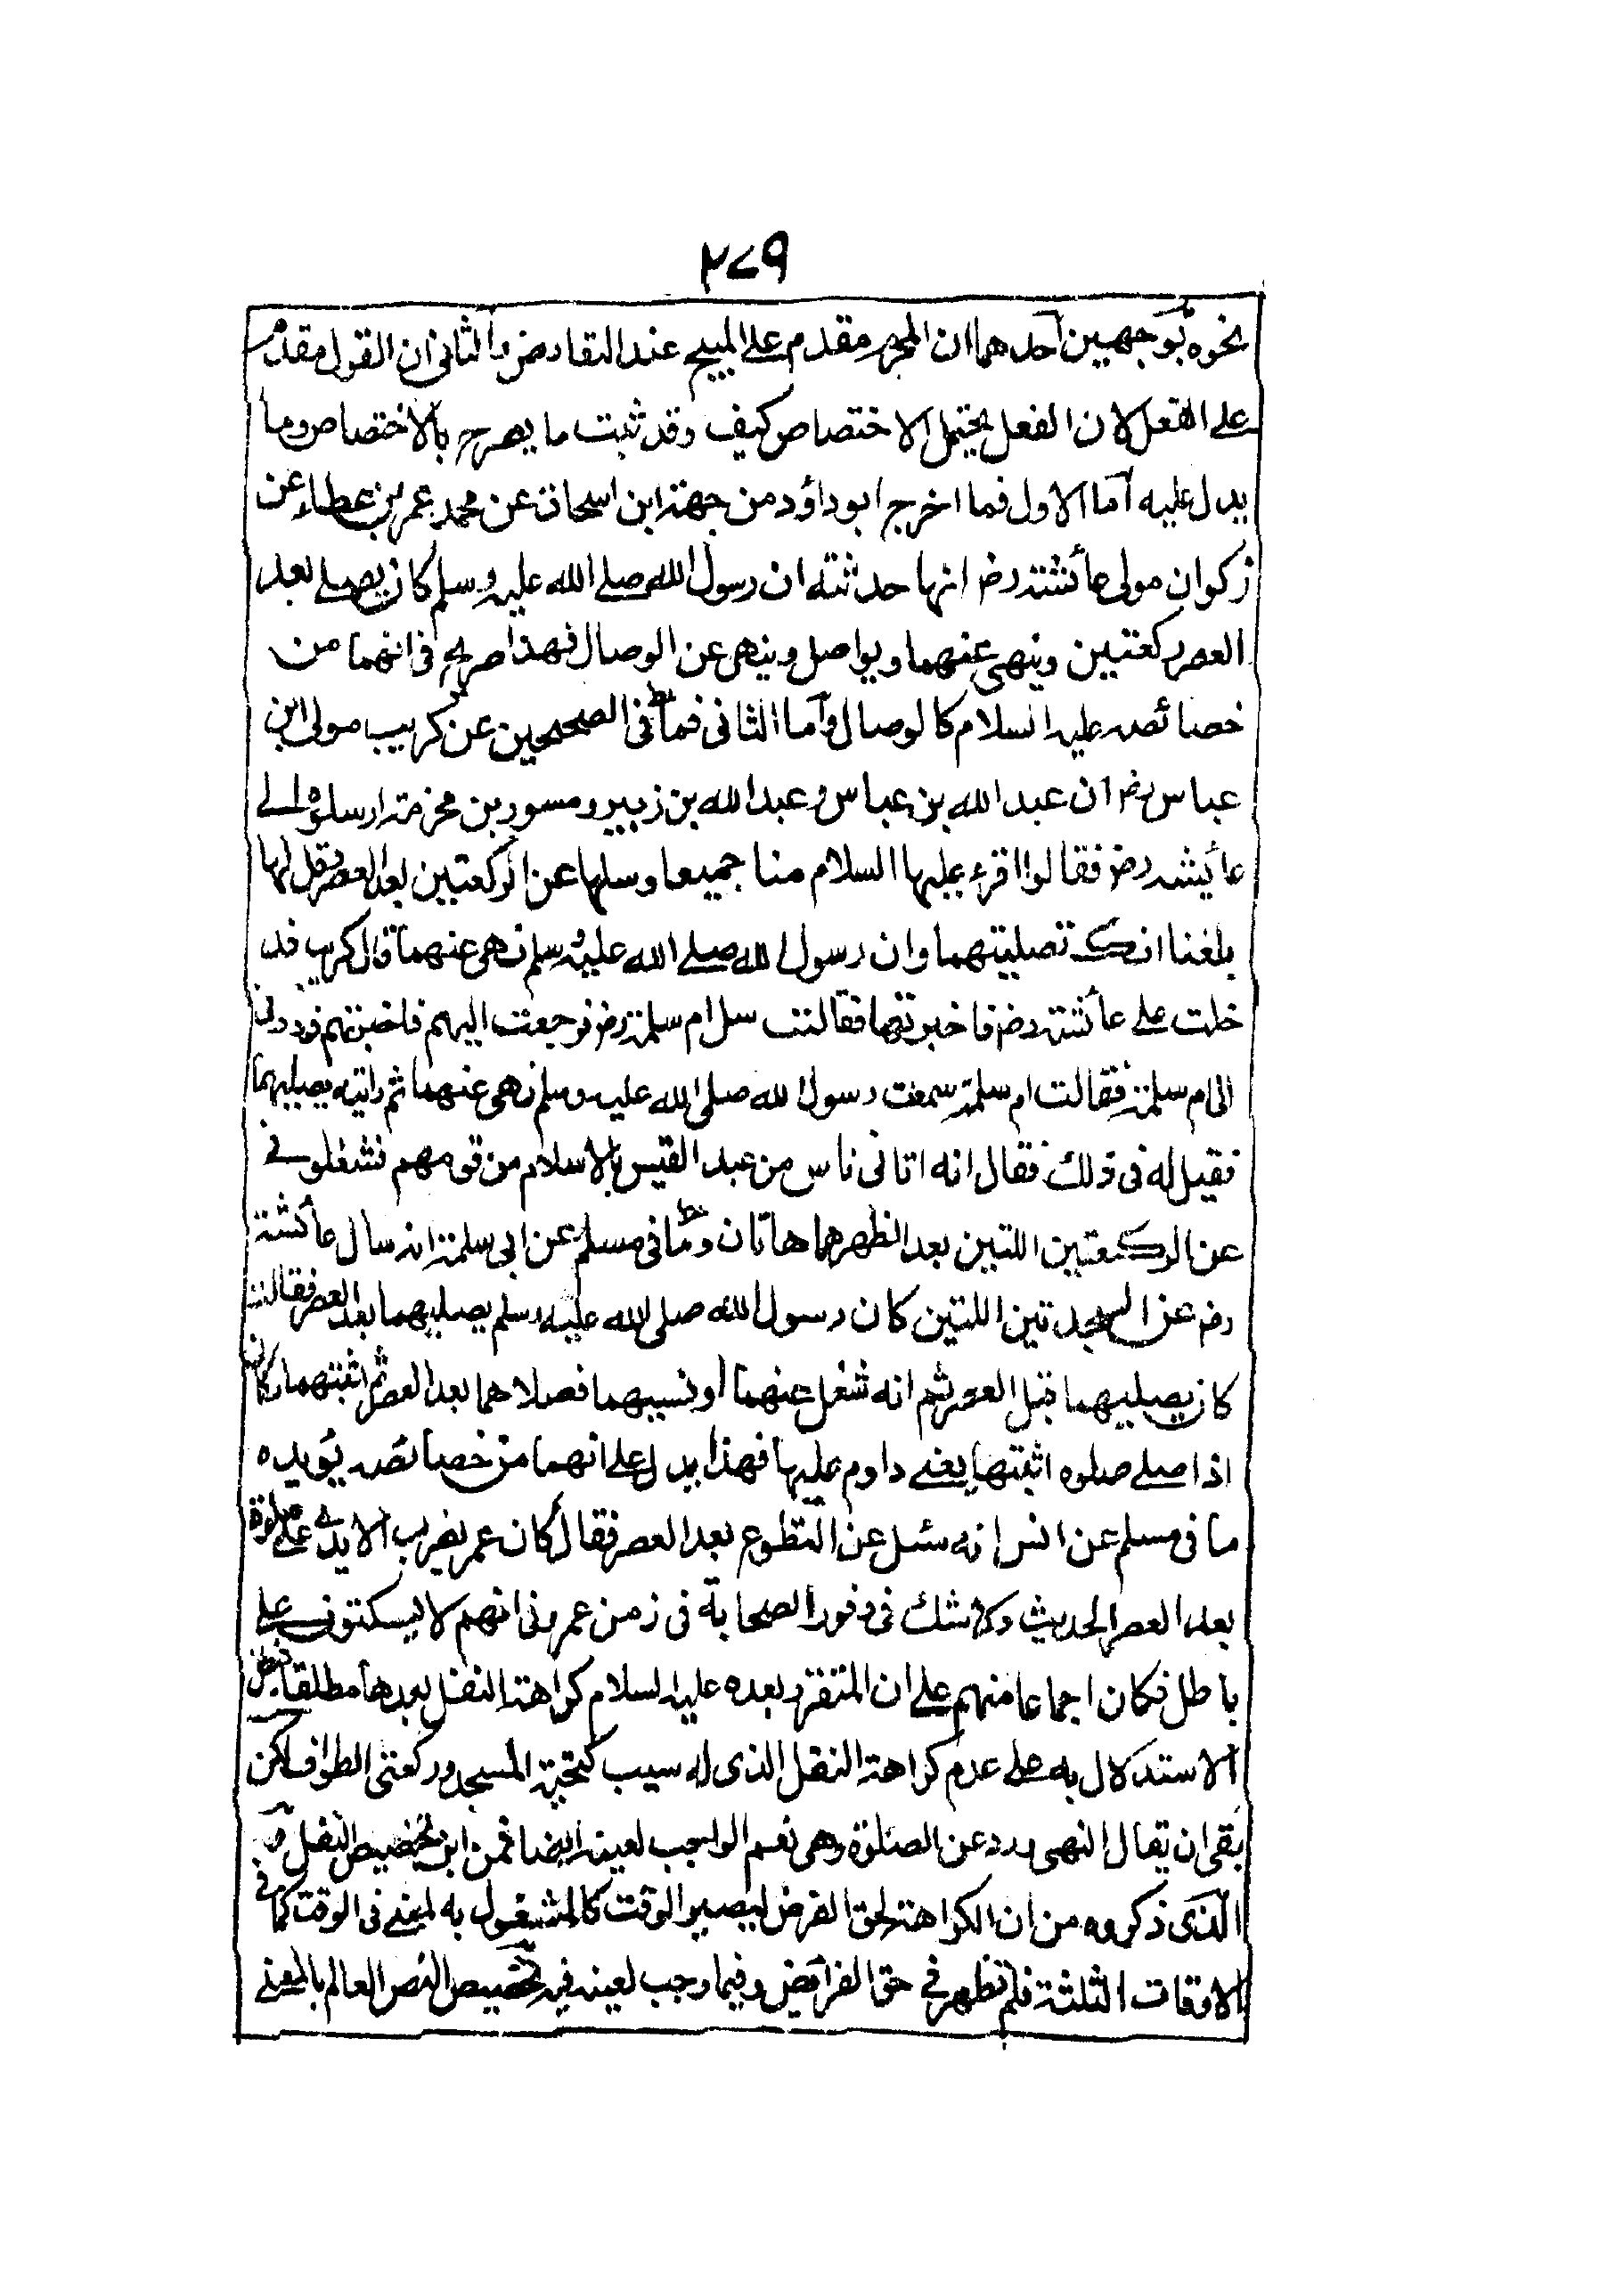 ٢٧٩
نحوه بوجهين احدهما ان المحرم مقدم على المبيح عند التعارض والثانى ان القول مقدم
على الفعل لان الفعل يحتمل الاختصاص كيف وقد ثبت ما يصرح بالاختصاص وما
يدل عليه اما الاول فما اخرج ابوداؤد من جهة ابن اسحاق عن محمد بن عمر بن عطاء عن
زكوان مولى عائشة رض انها حدثته ان رسول الله صلے الله عليه وسلم كان يصلے بعد
العصر ركعتين وينهى عنهما ويواصل وينهى عن الوصال فهذا صريح فى انهما من
خصائصه عليه السلام كالوصال واما الثانى فما فى الصحيحين عن كريب مولى ابن
عباس رض ان عبد الله بن عباس وعبد الله بن زبير ومسور بن مخرمة ارسلوه الے
عائشه رض فقالوا اقرء عليها السلام منا جميعا وسلها عن الركعتين بعد العصر وقل لها
بلغنا انك تصلينهما وان رسول الله صلے الله عليه وسلم نهى عنهما قال كريب فد
خلت على عائشة رض فاخبرتها فقالت سل ام سلمة رض فرجعت اليهم فاخبرتهم فردونى
الى ام سلمة فقالت ام سلمة سمعت رسول الله صلى الله عليه وسلم نهى عنهما ثم رايته يصليهما
فقيل له فى ذلك فقال انه اتانى ناس من عبد القيس بالاسلام من قومهم فشغلونے
عن الركعتين اللتين بعد الظهر هما هاتان وما فى مسلم عن ابى سلمة انه سال عائشة
رض عن السجدتين اللتين كان رسول الله صلى الله عليه وسلم يصليهما بعد العصر فقالت
كان يصليهما قبل العصر ثم انه شغل عنهما او نسيهما فصلاهما بعد العصر ثم اثبتهما وكان
اذا صلے صلوه اثبتها يعنے داوم عليها فهذا يدل على انهما من خصائصه يؤيده
ما فى مسلم عن انس انه سئل عن التطوع بعد العصر فقال كان عمر يضرب الايدے على صلوة
بعد العصر الحديث ولا شك فى وفور الصحابة فى زمن عمر وفى انهم لا يسكتون على
باطل فكان اجماعا منهم على ان المتقرر بعده عليه السلام كراهة النفل بعدها مطلقا
الاستدلال به على عدم كراهة النفل الذى له سبب كتحية المسجد وركعتى الطواف لكن
بقى ان يقال النهى ورد عن الصلوة وهى تعم الواجب لعينه ايضا فمن اين تخصيص النفل
الذى ذكروه من ان الكراهة لحق الفرض ليصير الوقت كالمشغول به لمعنے فى الوقت كما فى
الاوقات الثلثة فلم تظهر فى حق الفرائض وفيما وجب لعينه فيه تخصيص النص العالم بالمعنے